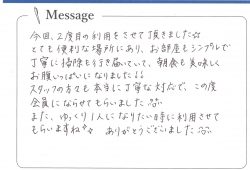 Message
今回、2度目の利用をさせて頂きました☆
とても便利な場所にあり、お部屋もシンプルで
丁寧に掃除も行き届いていて、朝食も美味しく
お腹いっぱいになりました!!
スタッフの方々も本当に丁寧な対応で、この度
会員にならせてもらいました
また、ゆっくり1人になりたい時に利用させて
もらいますね ありがとうございました